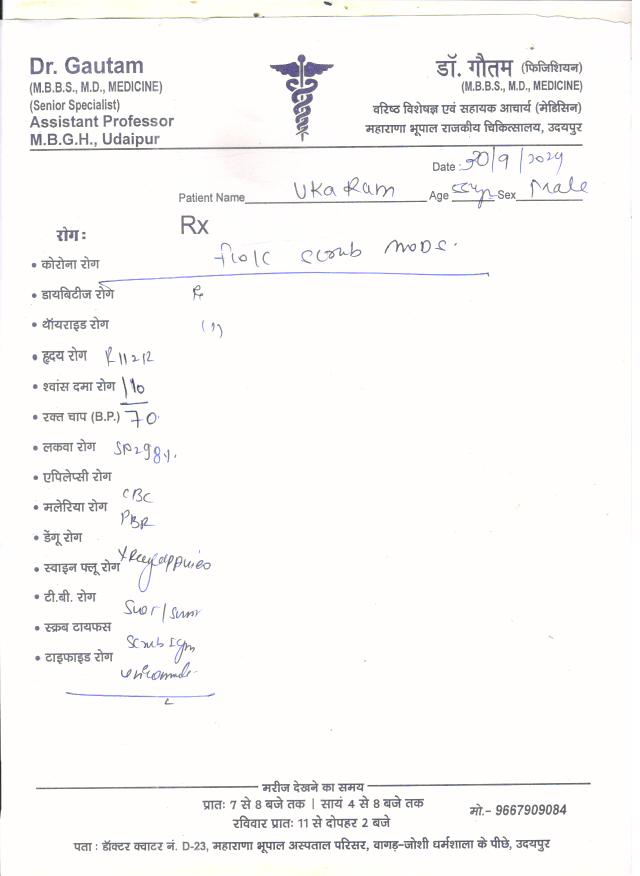 Dr. Gautam
(M.B.B.S., M.D., MEDICINE)
(Senior Specialist)
Assistant Professor
M.B.G.H., Udaipur
डॉ. गौतम (फिजिशियन)
(M.B.B.S., M.D., MEDICINE)
वरिष्ठ विशेषज्ञ एवं सहायक आचार्य (मेडिसिन)
महाराणा भूपाल राजकीय चिकित्सालय, उदयपुर
Date : 30/9/2024
Patient Name Uka Ram Age Sex Male
Rx
scrub MODS.
रोग :
• कोरोना रोग
• डायबिटीज रोग
(1)
• थॉयराइड रोग
• हृदय रोग
• श्वांस दमा रोग 110
• रक्त चाप (B.P.) 70
• लकवा रोग SP298%
• एपिलेप्सी रोग
CBC
• मलेरिया रोग
PBR
• डेंगू रोग
• स्वाइन फ्लू रोग
• टी.बी. रोग
• स्क्रब टायफस
Scrub IgM
• टाइफाइड रोग
मरीज देखने का समय
प्रातः 7 से 8 बजे तक | सायं 4 से 8 बजे तक
रविवार प्रातः 11 से दोपहर 2 बजे
मो.- 9667909084
पता : डॉक्टर क्वाटर नं. D-23, महाराणा भूपाल अस्पताल परिसर, वागड़-जोशी धर्मशाला के पीछे, उदयपुर